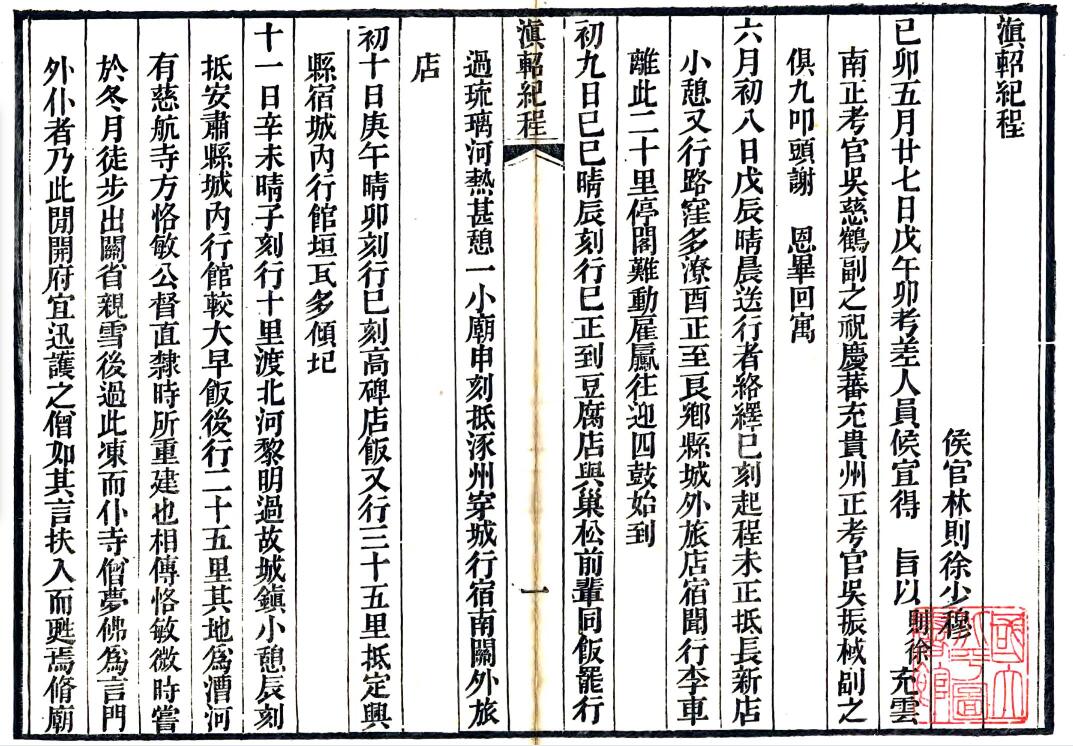 滇軺紀程
侯官林則徐少穆
己卯五月廿七日戊午卯考差人員候宣得　旨以則徐充雲
南正考官吳慈鶴副之祝慶蕃充貴州正考官吳振棫副之
俱九叩頭謝　恩畢回寓
六月初八日戊辰晴晨送行者絡繹巳刻起程未正抵長新店
小憩又行路窪多潦酉正至良鄉縣城外旅店宿聞行李車
離此二十里停閣難動雇驘往迎四鼓始到
初九日己巳晴辰刻行巳正到豆腐店與巢松前輩同飯罷行
滇軺紀程
一
過琉璃河熱甚憩一小廟申刻抵涿州穿城行宿南關外旅
店
初十日庚午晴卯刻行巳刻高碑店飯又行三十五里抵定興
縣宿城內行館垣瓦多傾圮
十一日辛未晴子刻行十里渡北河黎明過故城鎮小憩辰刻
抵安肅縣城內行館較大早飯後行二十五里其地爲漕河
有慈航寺方恪敏公督直隸時所重建也相傳恪敏微時嘗
於冬月徒步出關省親雪後過此凍而仆寺僧夢佛爲言門
外仆者乃此閒開府宜迅護之僧如其言扶入而甦焉脩廟